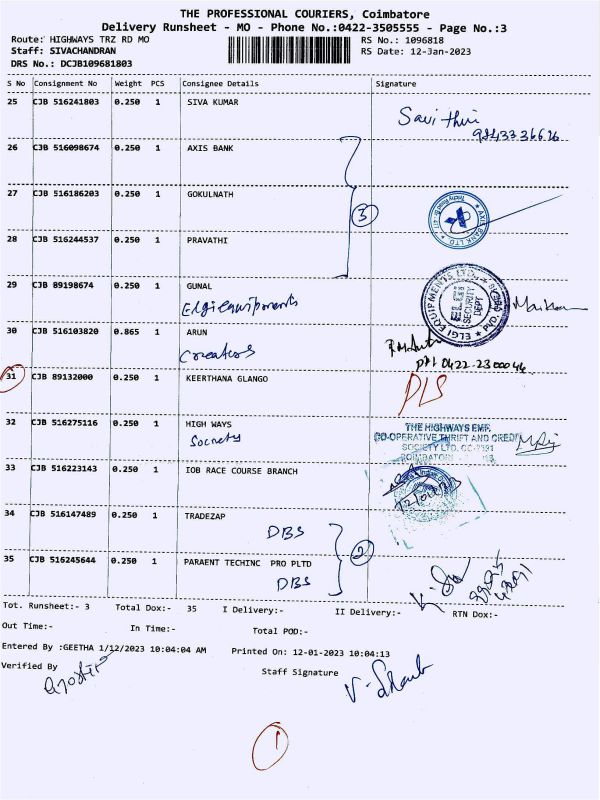 THE PROFESSIONAL COURIERS, Coimbatore
Delivery Runsheet - MO - Phone No.:0422-3505555 - Page No.:3
Route: HIGHWAYS TRZ RD MO
RS No.: 1096818
Staff: SIVACHANDRAN
RS Date: 12-Jan-2023
DRS No.: DCJB109681803
S No Consignment No Weight PCS Consignee Details Signature
25 CJB 516241803 0.250 1 SIVA KUMAR
Savithiri
26 CJB 516098674 0.250 1 AXIS BANK
27 CJB 516186203 0.250 1 GOKULNATH
3
AXIS BANK LTD
28 CJB 516244537 0.250 1 PRAVATHI
29 CJB 89198674 0.250 1 GUNAL
Elgi equipments
ELGI EQUIPMENTS LTD.
ELGI
SECURITY
DEPT
30 CJB 516103820 0.865 1 ARUN
Creators
0422-2300046
31 CJB 89132000 0.250 1 KEERTHANA GLANGO
DLS
32 CJB 516275116 0.250 1 HIGH WAYS
Society
THE HIGHWAYS EMP.
CO-OPERATIVE THRIFT AND CREDIT
SOCIETY LTD.
33 CJB 516223143 0.250 1 IOB RACE COURSE BRANCH
34 CJB 516147489 0.250 1 TRADEZAP
DBS
2
35 CJB 516245644 0.250 1 PARAENT TECHINC PRO PLTD
DBS
Tot. Runsheet:- 3 Total Dox:- 35 I Delivery:- II Delivery:- RTN Dox:-
Out Time:- In Time:- Total POD:-
Entered By :GEETHA 1/12/2023 10:04:04 AM Printed On: 12-01-2023 10:04:13
Verified By Staff Signature
1